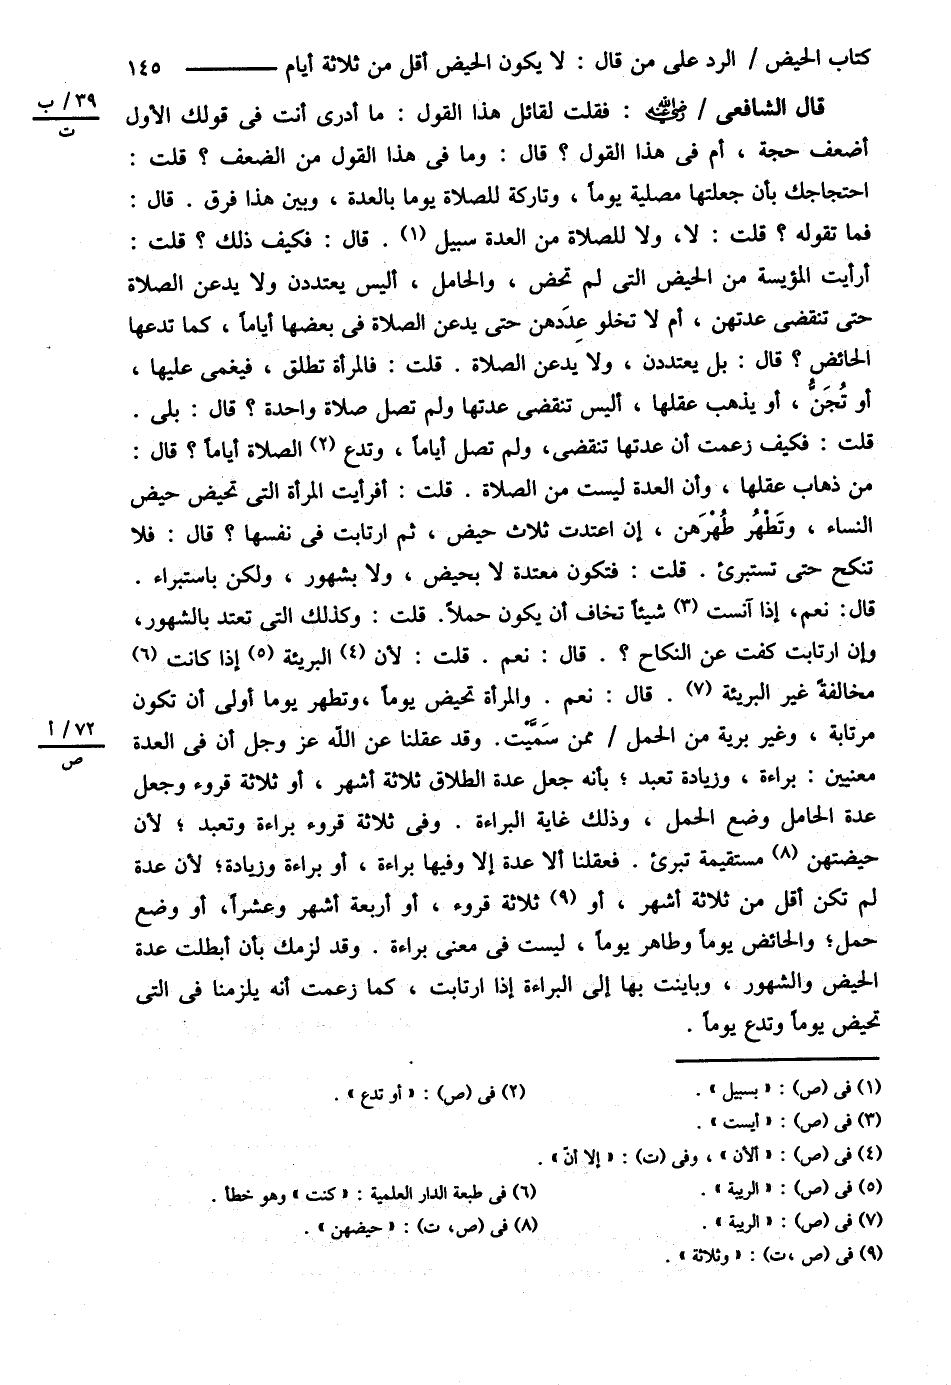 كتاب الحيض / الرد على من قال : لا يكون الحيض أقل من ثلاثة أيام ــــــــــ ١٤٥
٣٩/ ب
ت
قال الشافعى / رضي الله عنه : فقلت لقائل هذا القول : ما أدرى أنت فى قولك الأول
أضعف حجة ، أم فى هذا القول ؟ قال : وما فى هذا القول من الضعف ؟ قلت :
احتجاجك بأن جعلتها مصلية يوماً ، وتاركة للصلاة يوما بالعدة ، وبين هذا فرق . قال :
فما تقوله ؟ قلت : لا، ولا للصلاة من العدة سبيل (١) . قال : فكيف ذلك ؟ قلت :
أرأيت المؤيسة من الحيض التى لم تحض ، والحامل ، أليس يعتددن ولا يدعن الصلاة
حتى تنقضى عدتهن ، أم لا تخلو عِدَدهن حتى يدعن الصلاة فى بعضها أياماً ، كما تدعها
الحائض ؟ قال : بل يعتددن ، ولا يدعن الصلاة . قلت : فالمرأة تطلق ، فيغمى عليها ،
أو تُجَنُّ ، أو يذهب عقلها ، أليس تنقضى عدتها ولم تصل صلاة واحدة ؟ قال : بلى .
قلت : فكيف زعمت أن عدتها تنقضى، ولم تصل أياماً ، وتدع (٢) الصلاة أياماً ؟ قال :
من ذهاب عقلها ، وأن العدة ليست من الصلاة . قلت : أفرأيت المرأة التى تحيض حيض
النساء ، وتَطْهُر طُهْرَهن ، إن اعتدت ثلاث حيض ، ثم ارتابت فى نفسها ؟ قال : فلا
تنكح حتى تستبرئ . قلت : فتكون معتدة لا بحيض ، ولا بشهور ، ولكن باستبراء .
قال: نعم، إذا آنست (٣) شيئاً تخاف أن يكون حملاً. قلت : وكذلك التى تعتد بالشهور،
وإن ارتابت كفت عن النكاح ؟ . قال : نعم . قلت : لأن (٤) البريئة (٥) إذا كانت (٦)
مخالفةً غير البريئة (٧) . قال : نعم . والمرأة تحيض يوماً ،وتطهر يوما أولى أن تكون
٧٢/ أ
ص
مرتابة ، وغير برية من الحمل / ممن سَمَّيْت. وقد عقلنا عن الله عز وجل أن فى العدة
معنيين : براءة ، وزيادة تعبد ؛ بأنه جعل عدة الطلاق ثلاثة أشهر ، أو ثلاثة قروء وجعل
عدة الحامل وضع الحمل ، وذلك غاية البراءة . وفى ثلاثة قروء براءة وتعبد ؛ لأن
حيضتهن (٨) مستقيمة تبرئ . فعقلنا ألا عدة إلا وفيها براءة ، أو براءة وزيادة؛ لأن عدة
لم تكن أقل من ثلاثة أشهر ، أو (٩) ثلاثة قروء ، أو أربعة أشهر وعشراً، أو وضع
حمل؛ والحائض يوماً وطاهر يوماً ، ليست فى معنى براءة . وقد لزمك بأن أبطلت عدة
الحيض والشهور ، وباينت بها إلى البراءة إذا ارتابت ، كما زعمت أنه يلزمنا فى التى
تحيض يوماً وتدع يوماً .
(١) فى (ص) : « بسبيل » . (٢) فى (ص) : « أو تدع » .
(٣) فى (ص) : « أيست » .
(٤) فى (ص) : « ألأن » ، وفى (ت) : « إلا أنّ » .
(٥) فى (ص) : « الريبة » . (٦) فى طبعة الدار العلمية : « كنت » وهو خطأ .
(٧) فى (ص) : « الريبة » . (٨) فى (ص، ت) : « حيضهن » .
(٩) فى (ص ،ت) : « وثلاثة » .